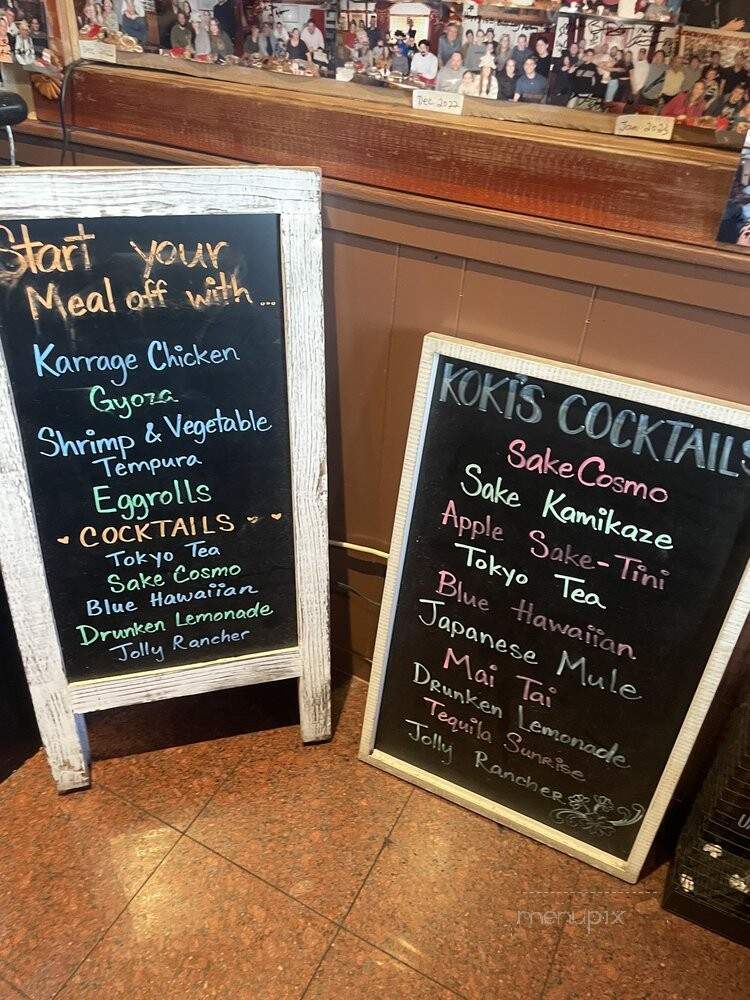 Dec 2022
Jan 2023
Start your
Meal off with...
Karrage Chicken
Gyoza
Shrimp & Vegetable
Tempura
Eggrolls
COCKTAILS
Tokyo Tea
Sake Cosmo
Blue Hawaiian
Drunken Lemonade
Jolly Rancher
KOKI'S COCKTAILS
Sake Cosmo
Sake Kamikaze
Apple Sake-Tini
Tokyo Tea
Blue Hawaiian
Japanese Mule
Mai Tai
Drunken Lemonade
Tequila Sunrise
Jolly Rancher
menupix